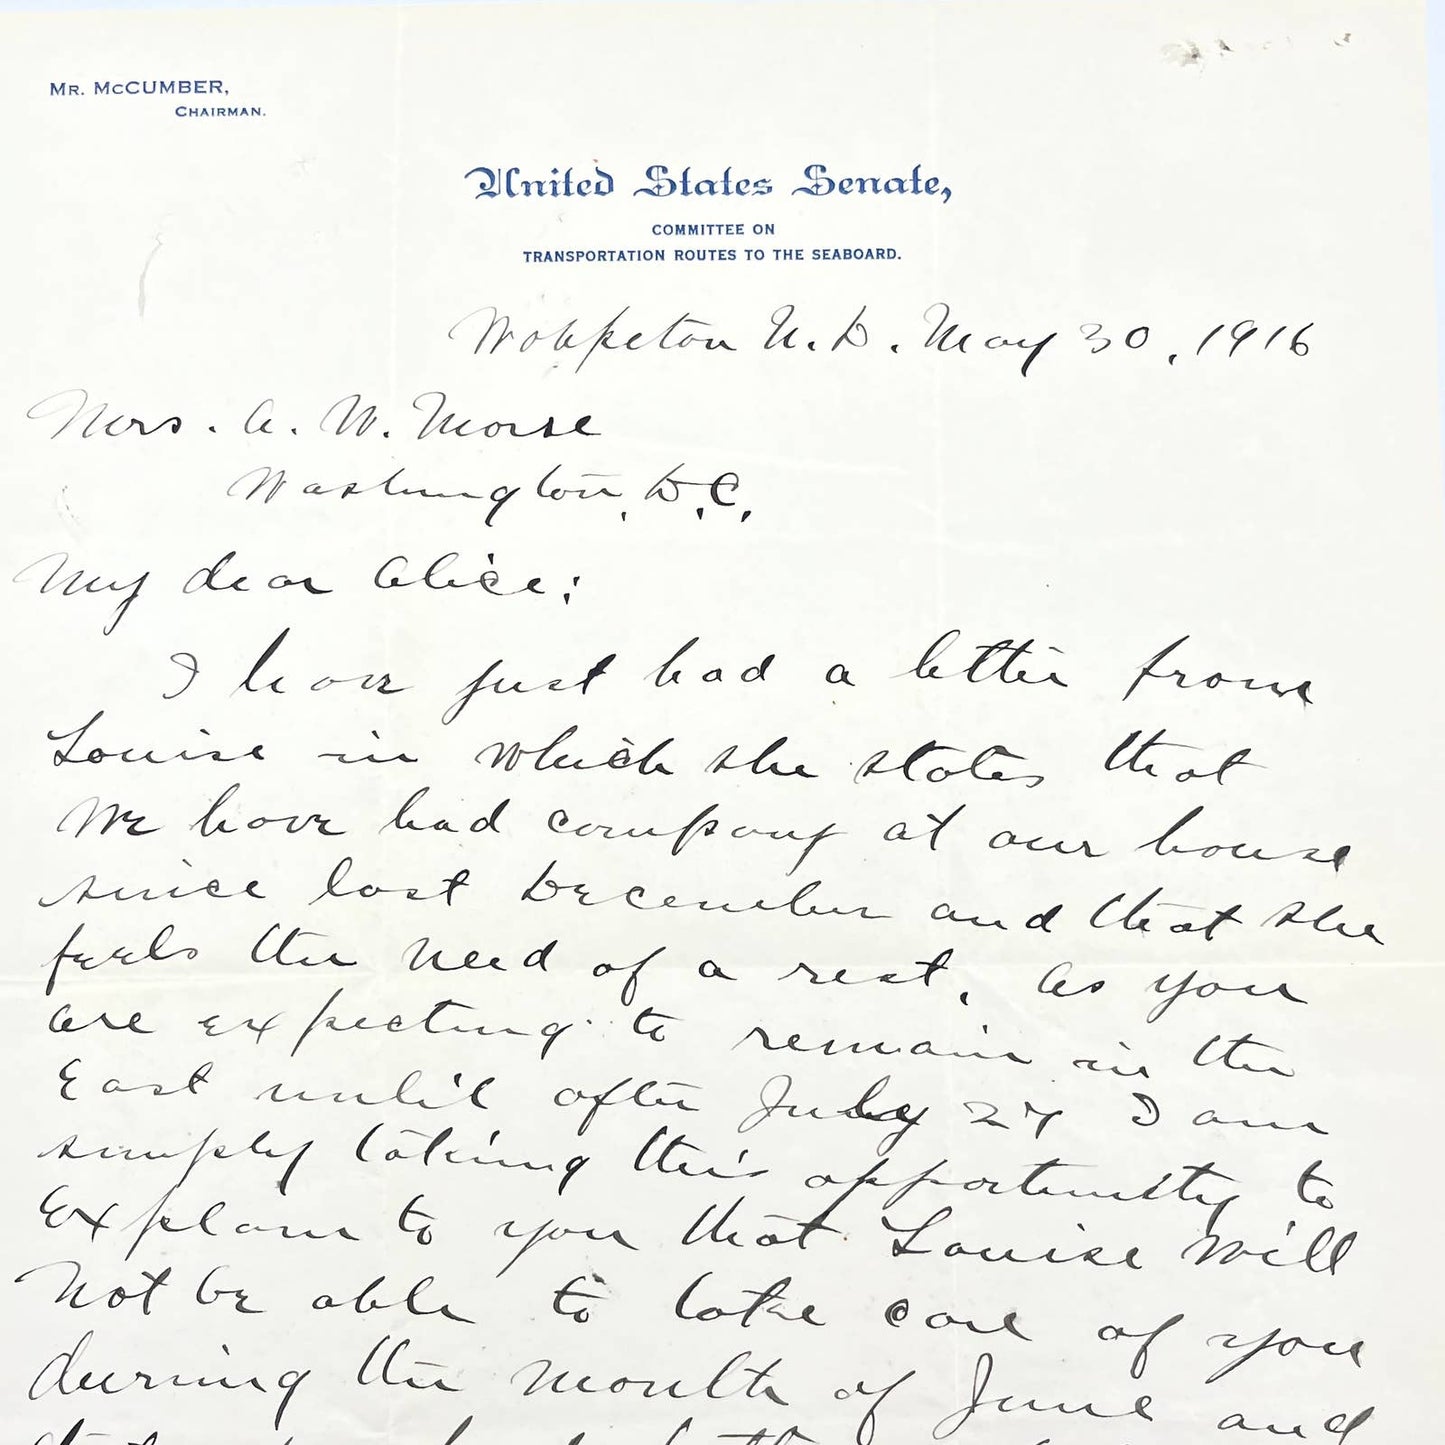 Mr. McCUMBER,
Chairman.
United States Senate,
COMMITTEE ON
TRANSPORTATION ROUTES TO THE SEABOARD.
Wahpeton N. D. May 30, 1916
Mrs. A. W. Morse
Washington, D.C.
My dear Alice:
I have just had a letter from
Louise in which she states that
we have had company at our house
since last December and that she
feels the need of a rest. As you
are expecting to remain in the
East until after July 27 I am
simply taking this opportunity to
explain to you that Louise will
not be able to take care of you
during the month of June and